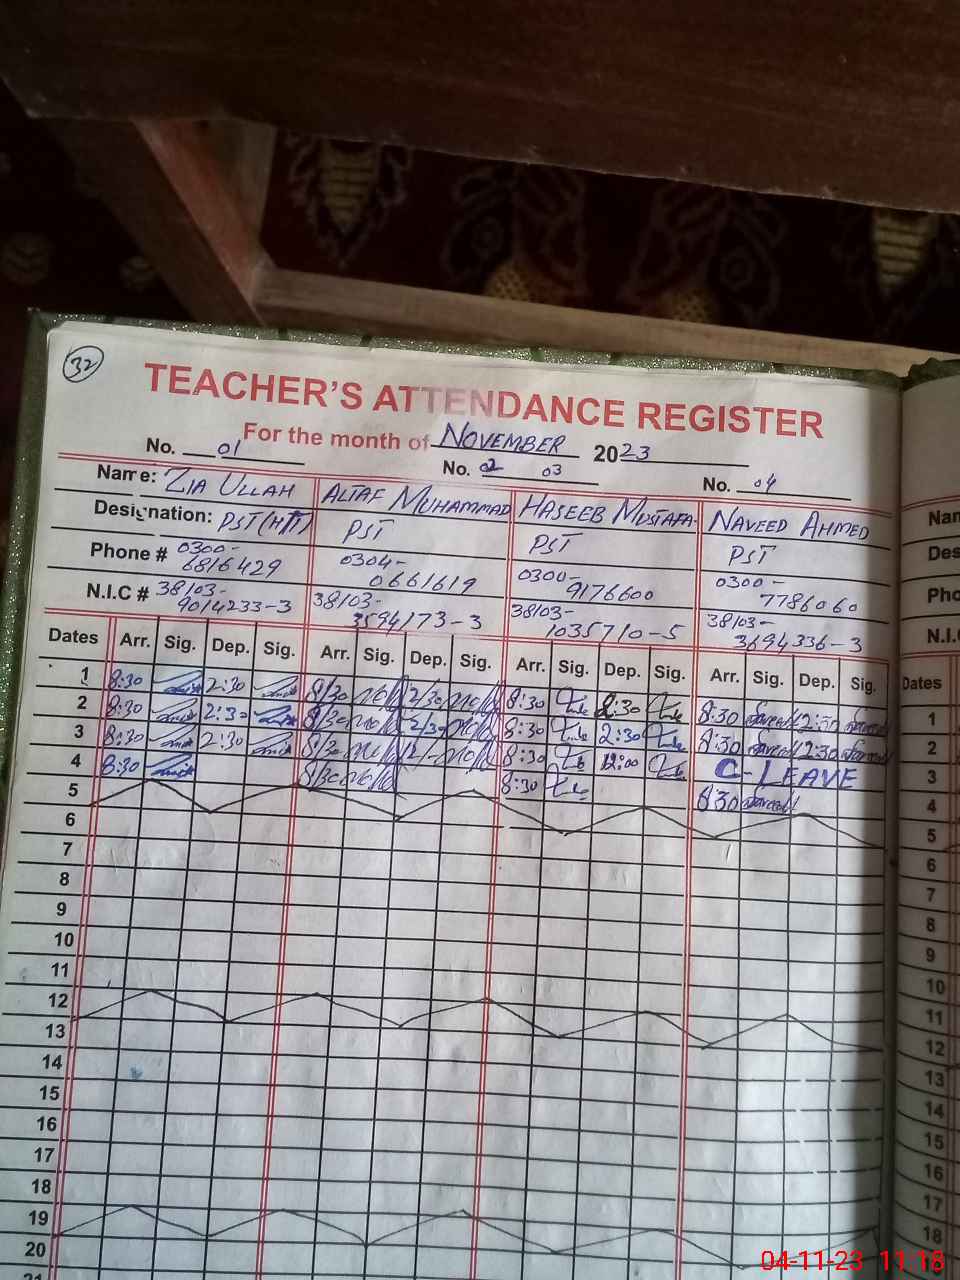 32
TEACHER'S ATTENDANCE REGISTER
For the month of NOVEMBER 2023
No. 01 No. 02 03 No. 04
Name: ZIA ULLAH ALTAF MUHAMMAD HASEEB MUSTAFA NAVEED AHMED
Designation: PST(HT) PST PST PST
Phone # 0300- 0304- 0300- 0300-
6816429 0661619 9176600 7786060
N.I.C # 38103- 38103- 38103- 38103-
9014233-3 3594173-3 1035710-5 3694336-3
Dates Arr. Sig. Dep. Sig. Arr. Sig. Dep. Sig. Arr. Sig. Dep. Sig. Arr. Sig. Dep. Sig.
1 8:30 2:30 8/30 2/30 8:30 2:30 8:30 2:30
2 8:30 2:30 8/30 2/30 8:30 2:30 8:30 2:30
3 8:30 2:30 8/30 8:30 12:00 C-LEAVE
4 8:30 8/30 8:30 8:30
5
6
7
8
9
10
11
12
13
14
15
16
17
18
19
20
21
Nam
Des
Pho
N.I.
Dates
1
2
3
4
5
6
7
8
9
10
11
12
13
14
15
16
17
18
04-11-23 11:18